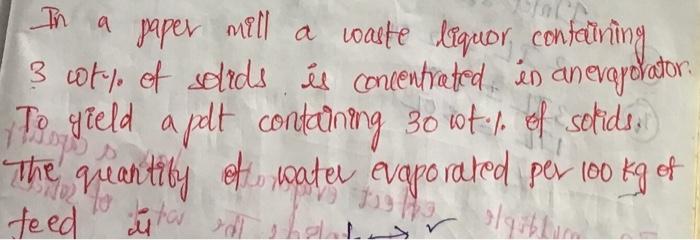 In a paper mill a waste liquor containing
3 wt·% of solids is concentrated in an evaporator.
To yield a pdt containing 30 wt·% of solids.
The quantity of water evaporated per 100 kg of
feed is